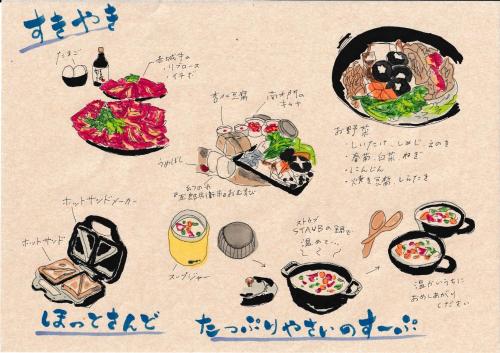 すきやき
たまご
赤城牛の
・リブロース
・イチボ
杏仁豆腐
南木門の
キャナ
うめぼし
幻の米
おむすび
お野菜
・しいたけ・しめじ・えのき
・春菊・白菜・ねぎ
・にんじん
・焼き豆腐・しらたき
ホットサンドメーカー
ホットサンド
ほっとさんど
スープジャー
ストウブ
STAUBの鍋で
温めて…
温かいうちに
おめしあがり
ください
たっぷりやさいのすーぷ